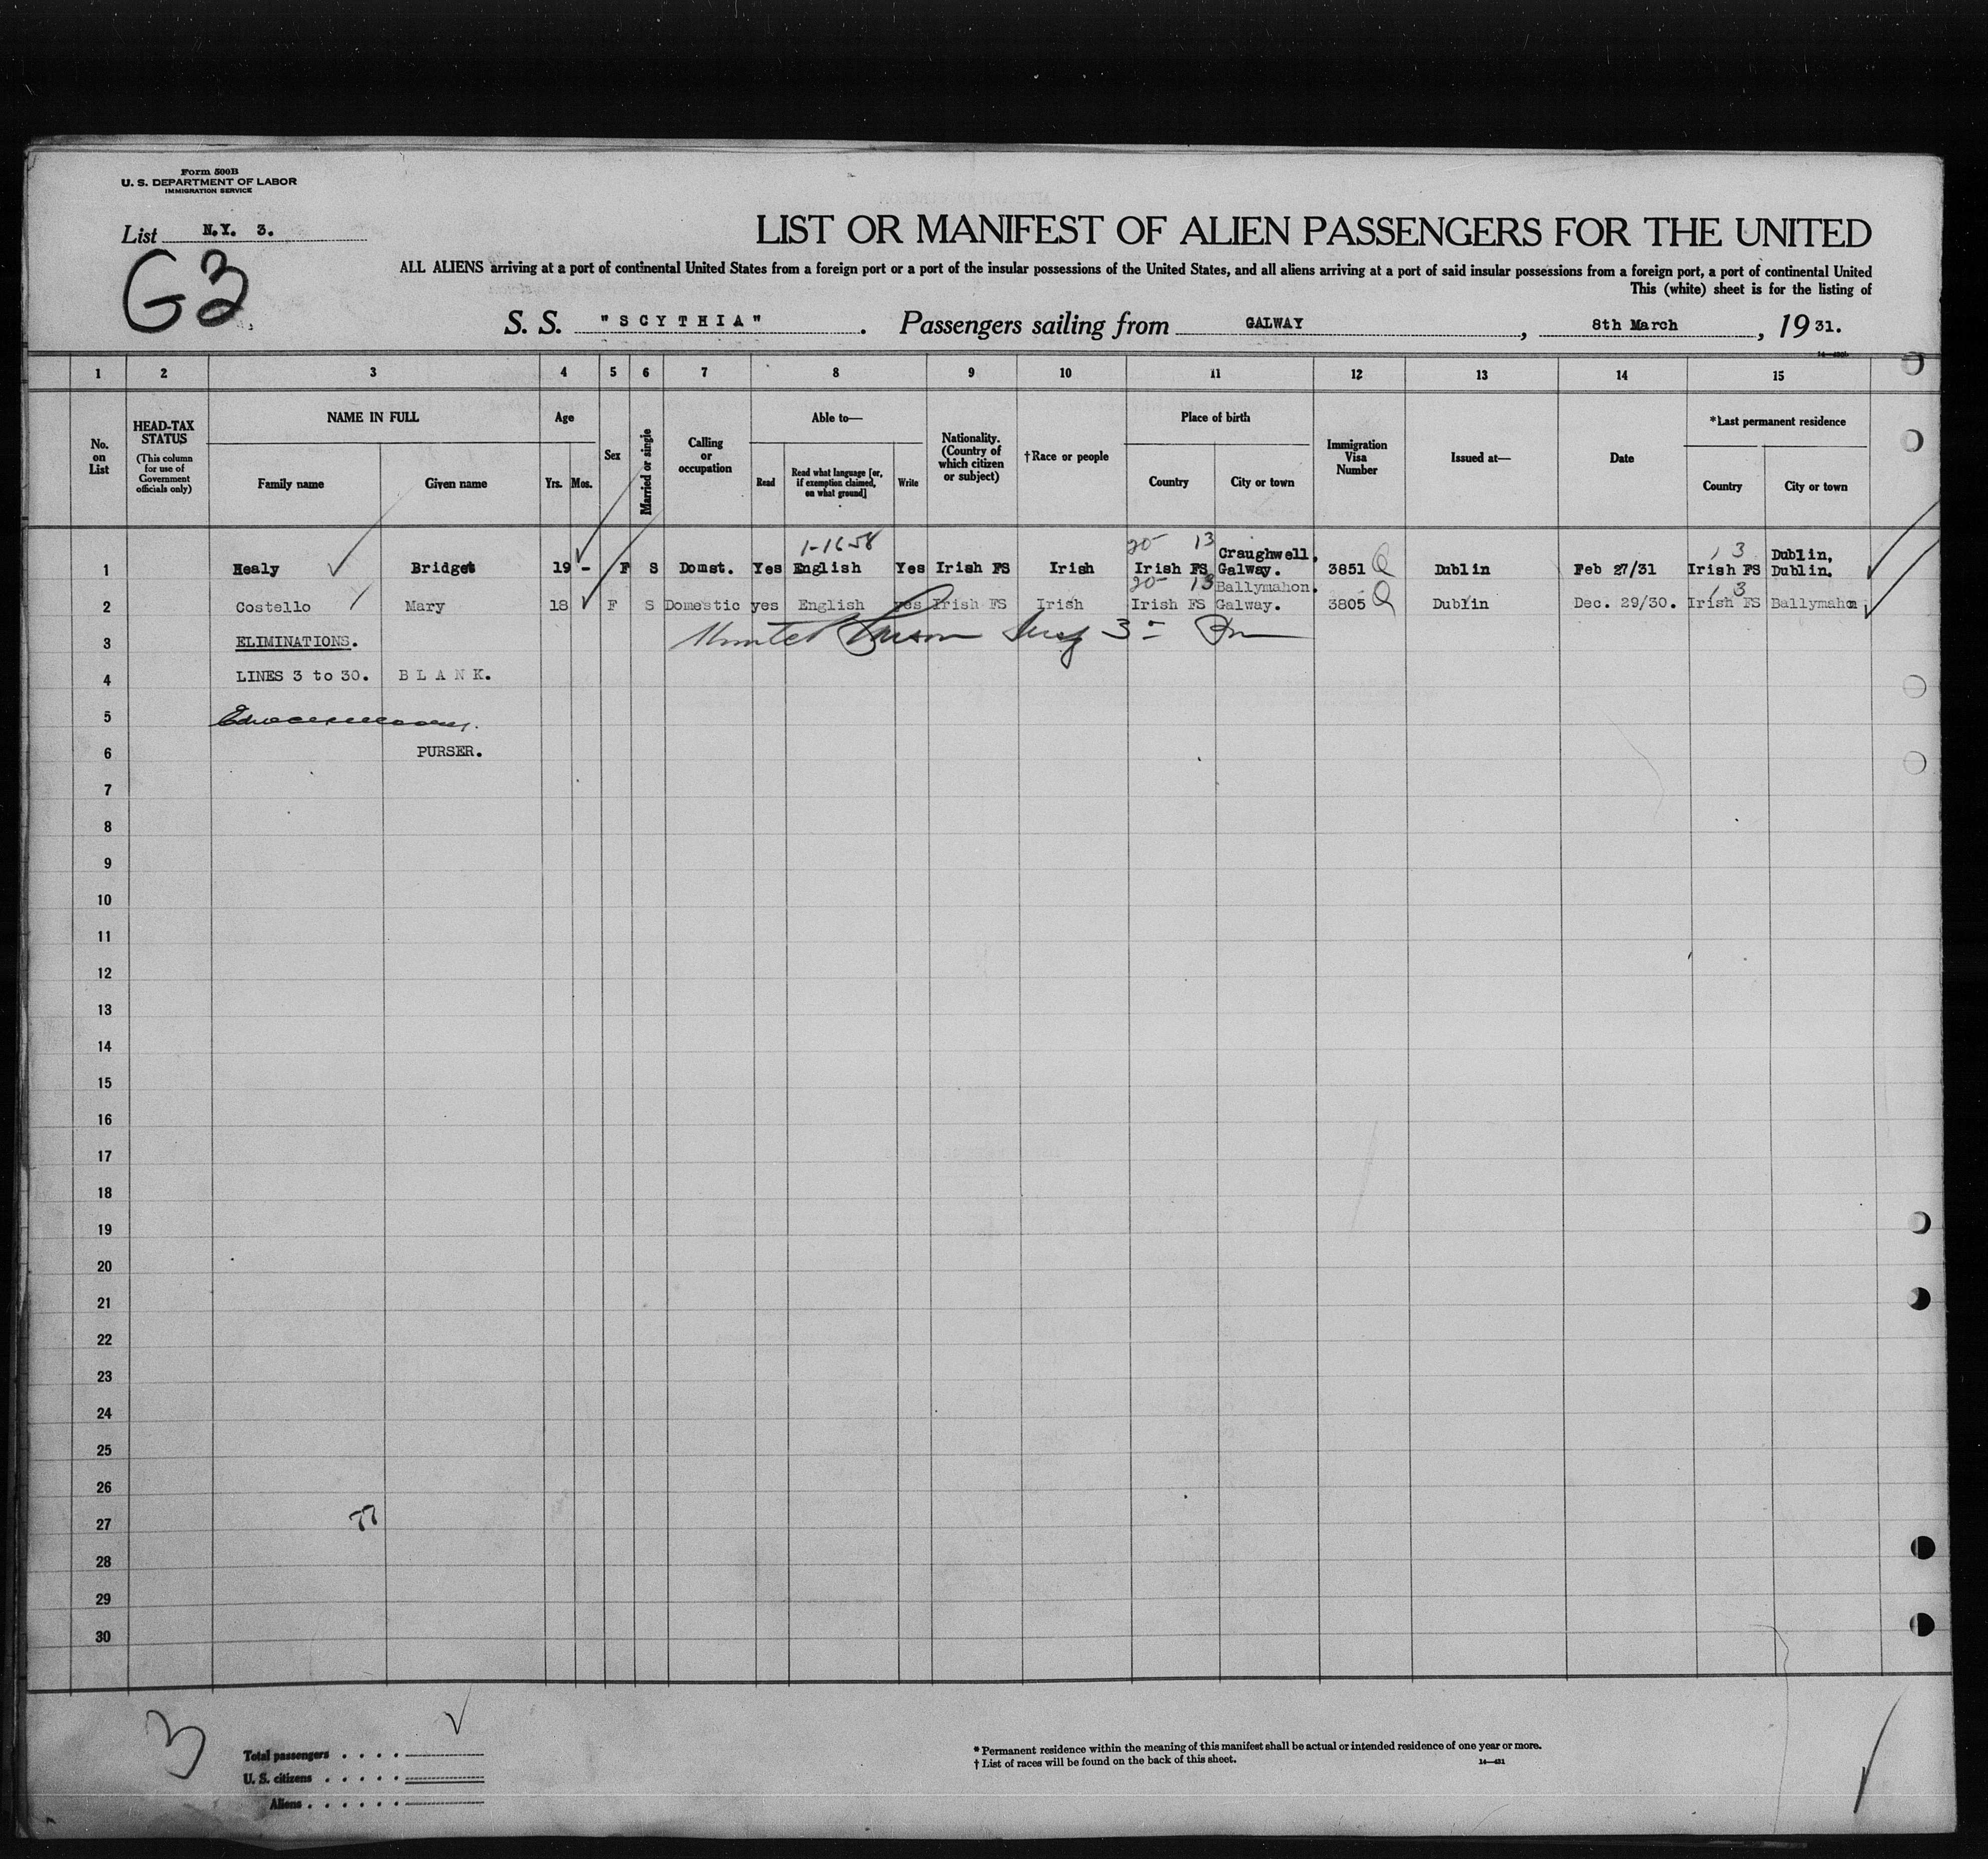 Form 500B
U. S. DEPARTMENT OF LABOR
IMMIGRATION SERVICE
List N.Y. 3.
G3
LIST OR MANIFEST OF ALIEN PASSENGERS FOR THE UNITED
ALL ALIENS arriving at a port of continental United States from a foreign port or a port of the insular possessions of the United States, and all aliens arriving at a port of said insular possessions from a foreign port, a port of continental United
This (white) sheet is for the listing of
S. S. "SCYTHIA" . Passengers sailing from GALWAY , 8th March , 19 31.
1 2 3 4 5 6 7 8 9 10 11 12 13 14 15
No. on List
HEAD-TAX STATUS (This column for use of Government officials only)
NAME IN FULL
Family name Given name
Age
Yrs. Mos.
Sex
Married or single
Calling or occupation
Able to—
Read Read what language [or, if exemption claimed, on what ground] Write
Nationality. (Country of which citizen or subject)
†Race or people
Place of birth
Country City or town
Immigration Visa Number
Issued at—
Date
*Last permanent residence
Country City or town
1-1658 20- 13 13
1 Healy Bridget 19 - F S Domst. Yes English Yes Irish FS Irish Irish FS Craughwell, Galway. 3851 Q Dublin Feb 27/31 Irish FS Dublin, Dublin.
20- 13 13
2 Costello Mary 18 F S Domestic yes English yes Irish FS Irish Irish FS Ballymahon, Galway. 3805 Q Dublin Dec. 29/30. Irish FS Ballymahon
3 ELIMINATIONS.
4 LINES 3 to 30. BLANK.
5
6 PURSER.
7
8
9
10
11
12
13
14
15
16
17
18
19
20
21
22
23
24
25
26
27
28
29
30
3
Total passengers
U. S. citizens
Aliens
* Permanent residence within the meaning of this manifest shall be actual or intended residence of one year or more.
† List of races will be found on the back of this sheet.